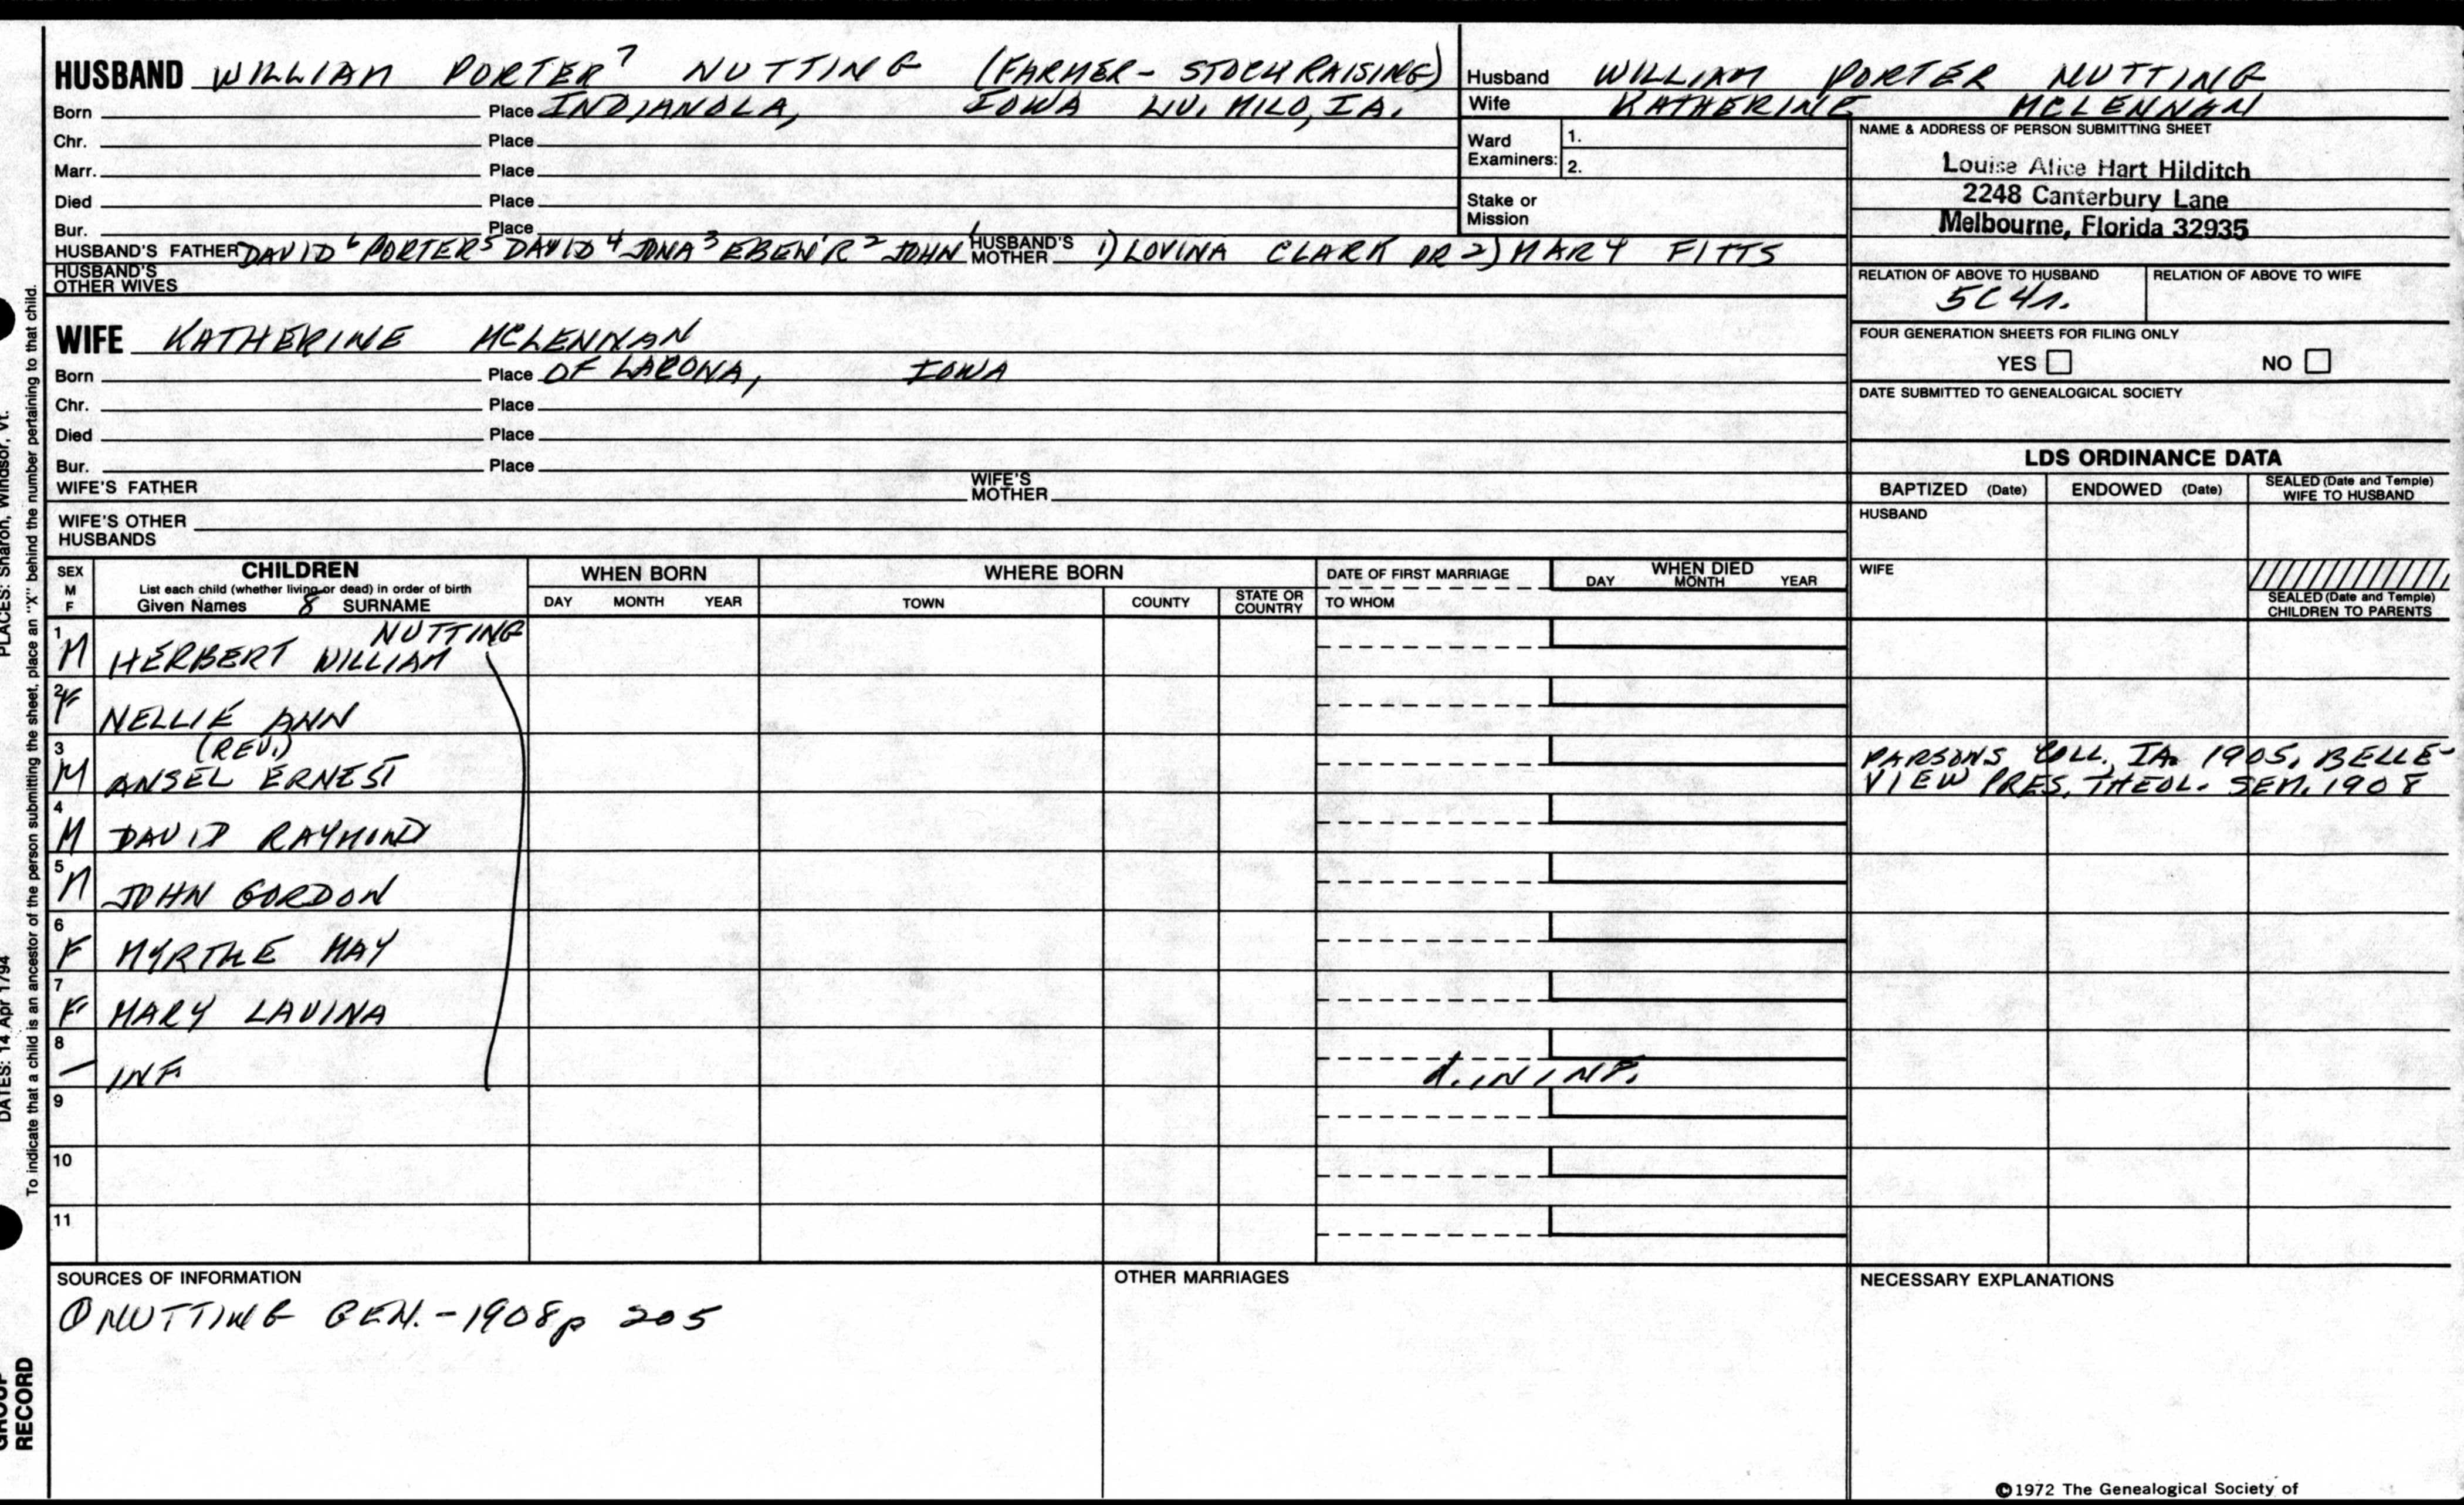 HUSBAND WILLIAM PORTER 7 NUTTING (FARMER - STOCK RAISING)
Born Place INDIANOLA, IOWA LIV. MILO, IA.
Chr. Place
Marr. Place
Died Place
Bur. Place
HUSBAND'S FATHER DAVID 6 PORTER 5 DAVID 4 JONA 3 EBEN'R 2 JOHN 1 HUSBAND'S MOTHER 1) LOVINA CLARK OR 2) MARY FITTS
HUSBAND'S OTHER WIVES
Husband WILLIAM PORTER NUTTING
Wife KATHERINE MCLENNAN
Ward Examiners: 1.
2.
Stake or Mission
NAME & ADDRESS OF PERSON SUBMITTING SHEET
Louise Alice Hart Hilditch
2248 Canterbury Lane
Melbourne, Florida 32935
RELATION OF ABOVE TO HUSBAND RELATION OF ABOVE TO WIFE
5C4r.
FOUR GENERATION SHEETS FOR FILING ONLY
YES NO
DATE SUBMITTED TO GENEALOGICAL SOCIETY
WIFE KATHERINE MCLENNAN
Born Place OF LACONA, IOWA
Chr. Place
Died Place
Bur. Place
WIFE'S FATHER WIFE'S MOTHER
WIFE'S OTHER HUSBANDS
LDS ORDINANCE DATA
BAPTIZED (Date) ENDOWED (Date) SEALED (Date and Temple) WIFE TO HUSBAND
HUSBAND
WIFE
SEALED (Date and Temple) CHILDREN TO PARENTS
SEX M F
CHILDREN
List each child (whether living or dead) in order of birth
Given Names 8 SURNAME
WHEN BORN
DAY MONTH YEAR
WHERE BORN
TOWN COUNTY STATE OR COUNTRY
DATE OF FIRST MARRIAGE
TO WHOM
WHEN DIED
DAY MONTH YEAR
NUTTING
1 M HERBERT WILLIAM
2 F NELLIE ANN
(REV.)
3 M ANSEL ERNEST PARSONS COLL, IA. 1905, BELLE-
VIEW PRES. THEOL. SEM. 1908
4 M DAVID RAYMOND
5 M JOHN GORDON
6 F MYRTLE MAY
7 F MARY LAVINA
8 - INF d. IN INF.
9
10
11
SOURCES OF INFORMATION
① NUTTING GEN. - 1908 p 205
OTHER MARRIAGES
NECESSARY EXPLANATIONS
©1972 The Genealogical Society of
PLACES: Sharon, Windsor, Vt.
DATES: 14 Apr 1794
To indicate that a child is an ancestor of the person submitting the sheet, place an "X" behind the number pertaining to that child.
GROUP
RECORD